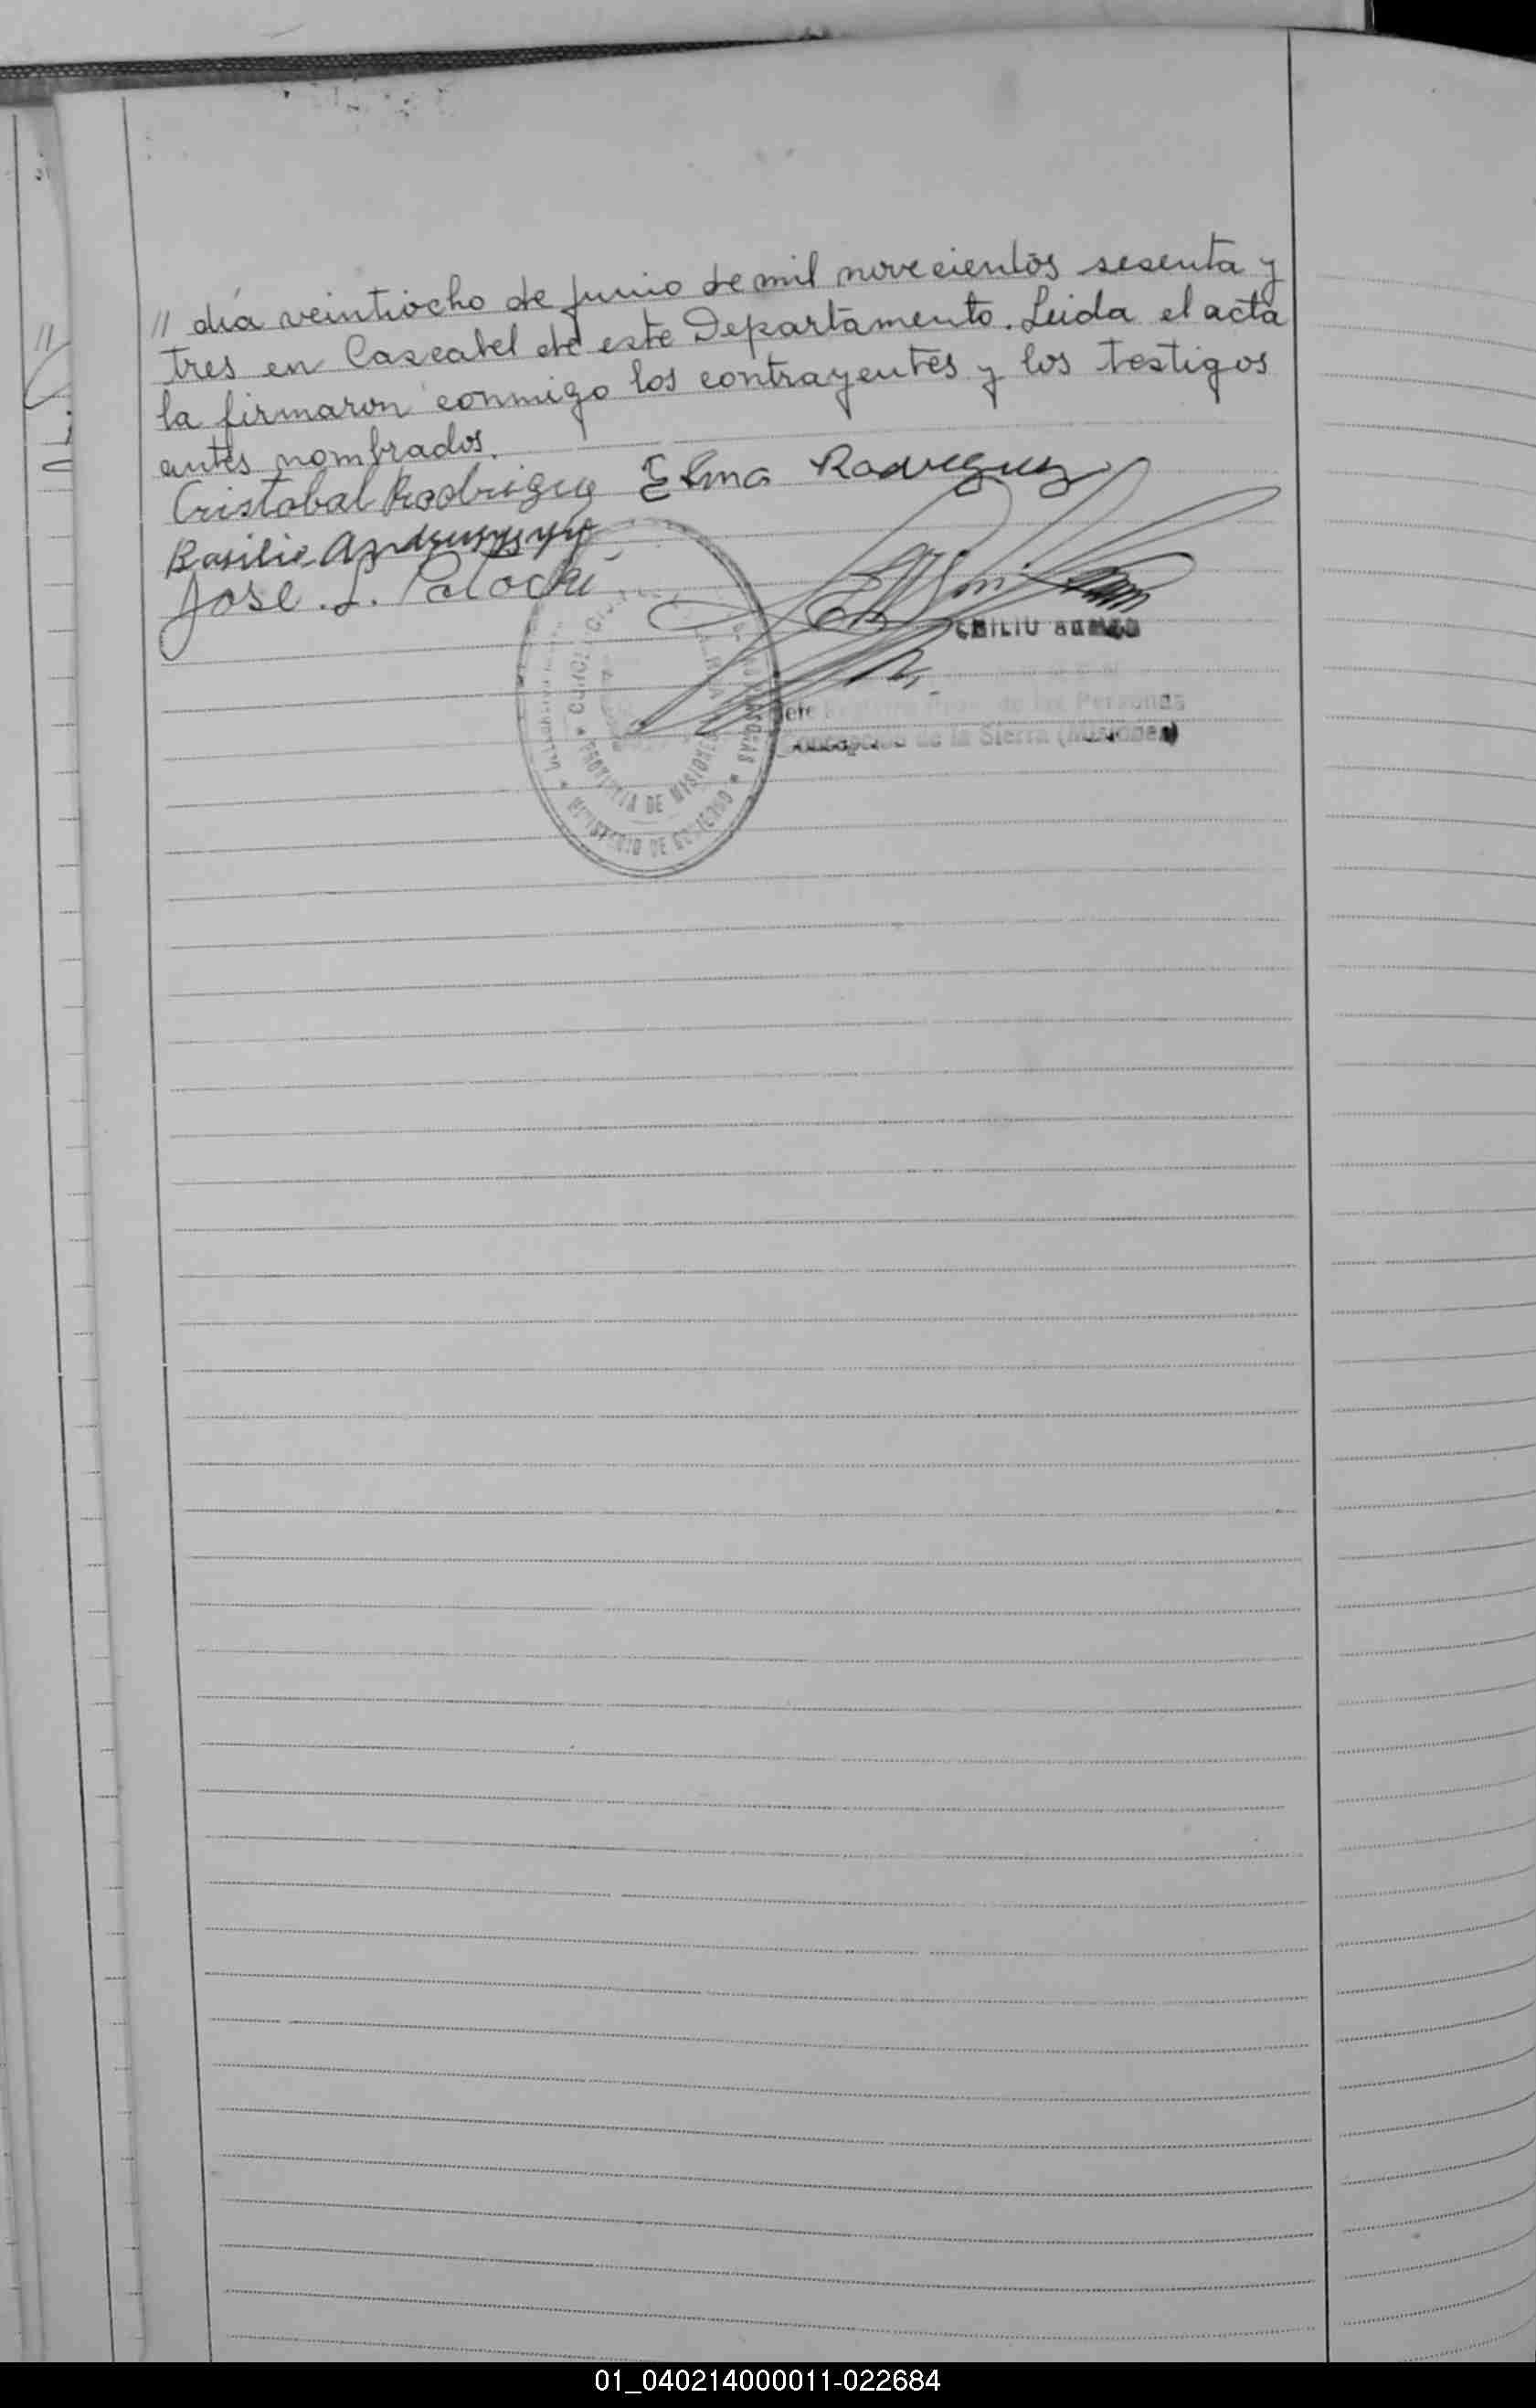 // día veintiocho de junio de mil novecientos sesenta y
tres en Cascabel de este Departamento. Leida el acta
la firmaron conmigo los contrayentes y los testigos
antes nombrados.
Cristobal Rodrigue Elma Rodriguez
Basilio
Jose. L. Palocki
EMILIO
Jefe Registro de las Personas
Concepción de la Sierra (Misiones)
PERSONAS
PROVINCIA DE MISIONES
MINISTERIO DE GOBIERNO
//
01_040214000011-022684